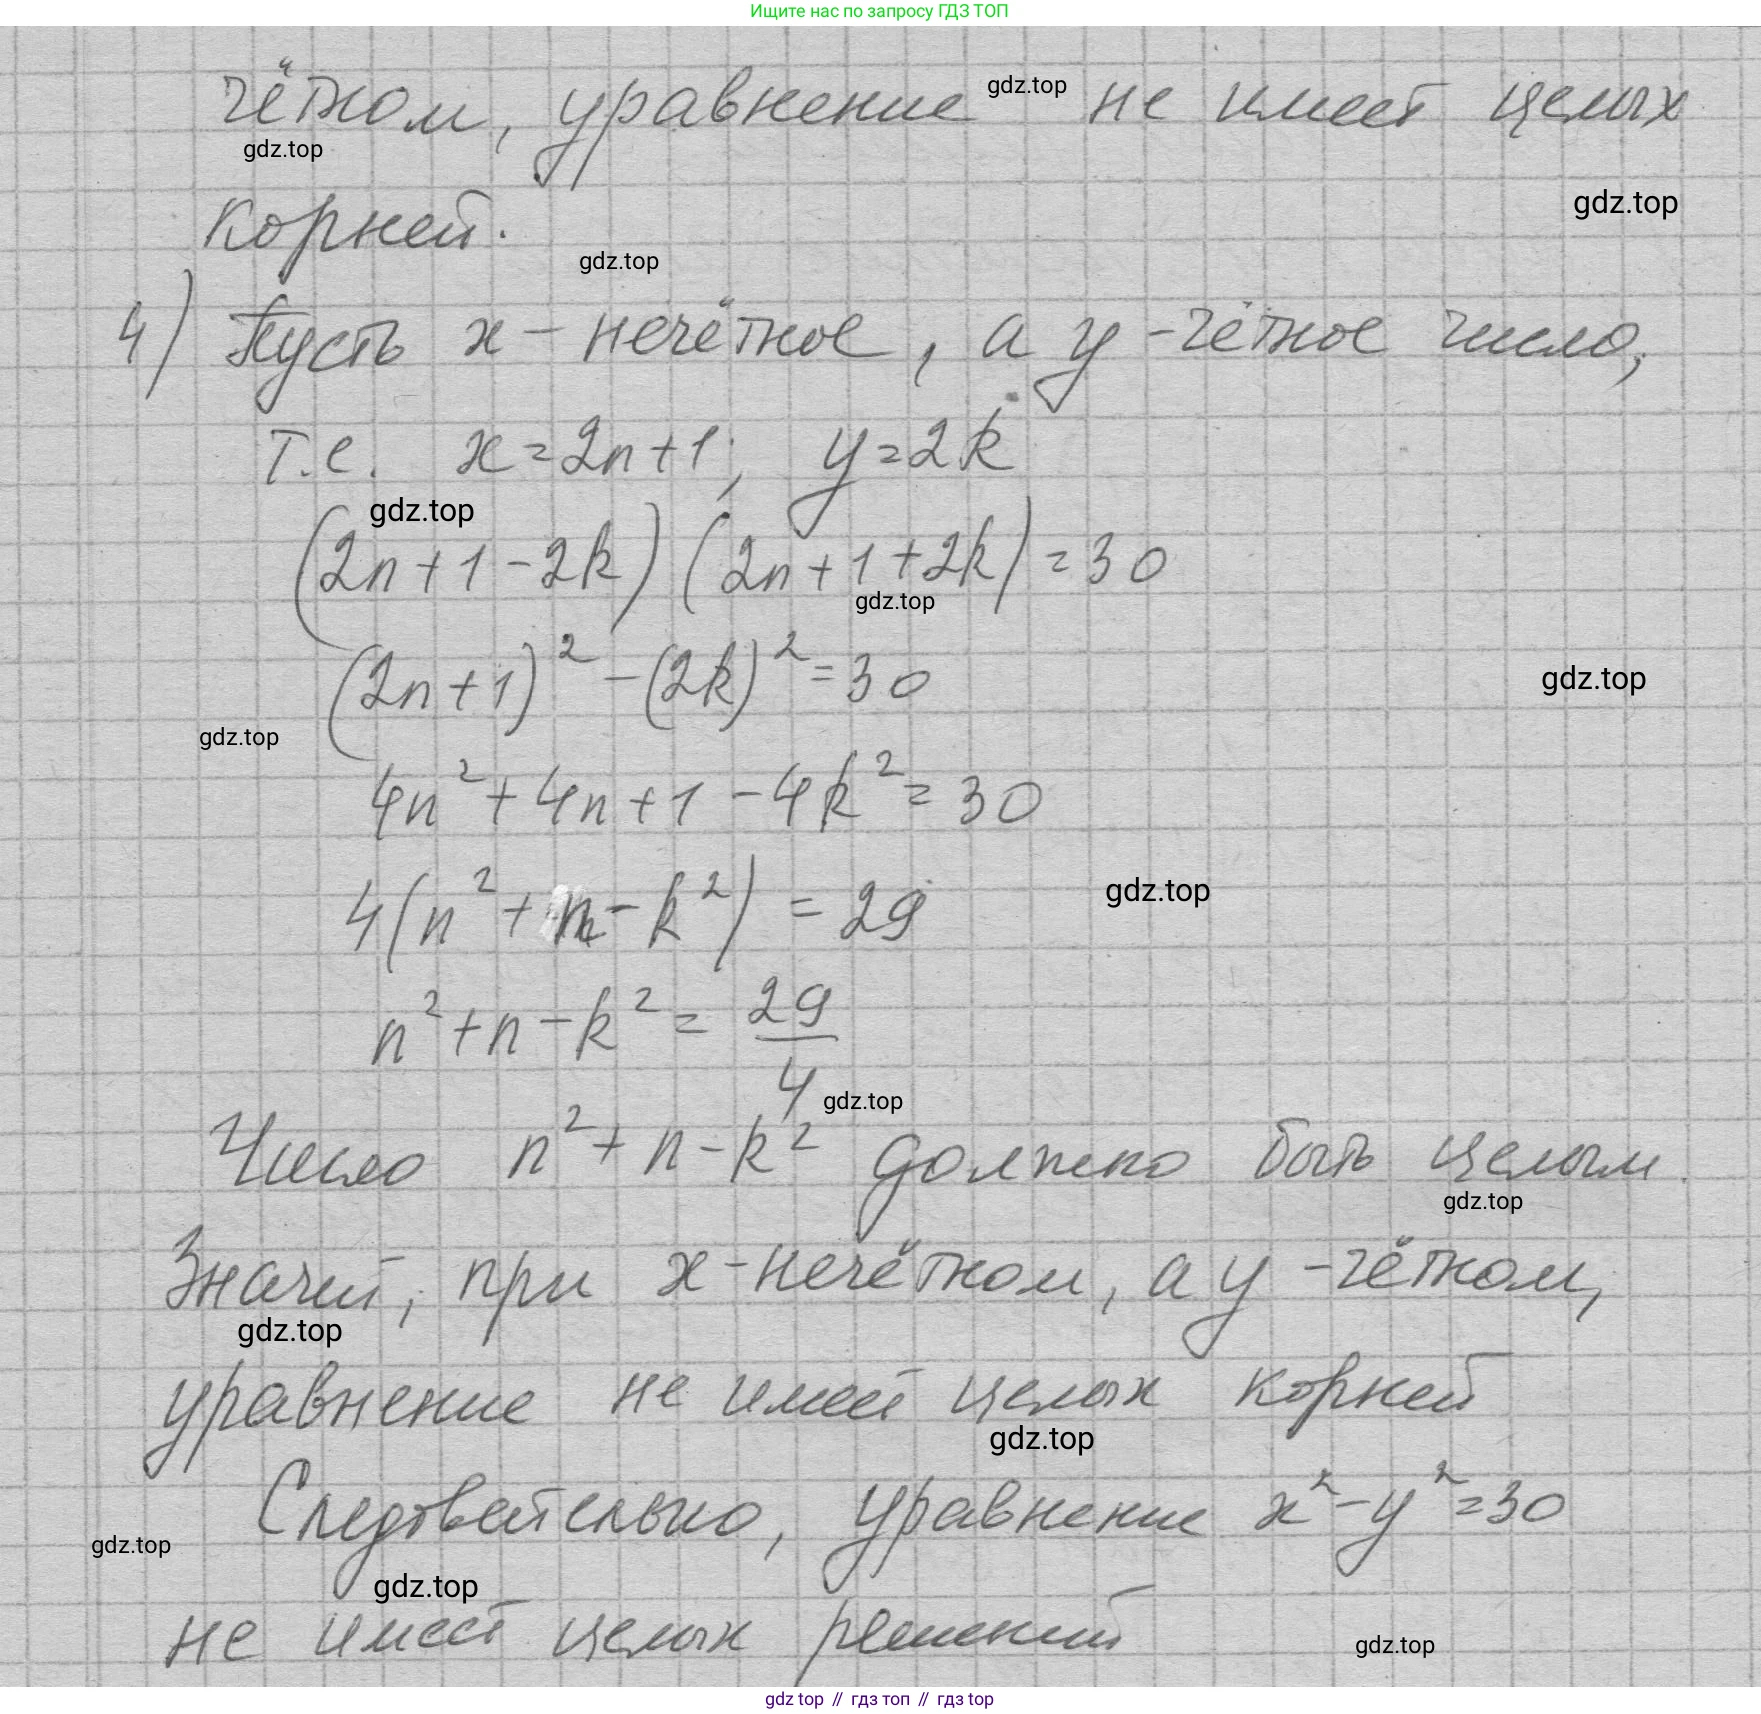 Ищите нас по запросу ГДЗ ТОП
чётном, уравнение не имеет целых
gdz.top
gdz.top
корней.
gdz.top
gdz.top
4) Пусть x – нечётное, а y – чётное число,
т.е. x = 2n + 1; y = 2k
gdz.top
(2n + 1 - 2k) (2n + 1 + 2k) = 30
gdz.top
(2n + 1)² - (2k)² = 30
gdz.top
gdz.top
4n² + 4n + 1 - 4k² = 30
4(n² + n - k²) = 29
gdz.top
n² + n - k² = 29/4
gdz.top
Число n² + n - k² должно быть целым.
gdz.top
Значит, при x – нечётном, а y – чётном,
gdz.top
уравнение не имеет целых корней
gdz.top
Следовательно, уравнение x² - y² = 30
gdz.top
gdz.top
не имеет целых решений
gdz.top
gdz top // гдз топ // gdz top